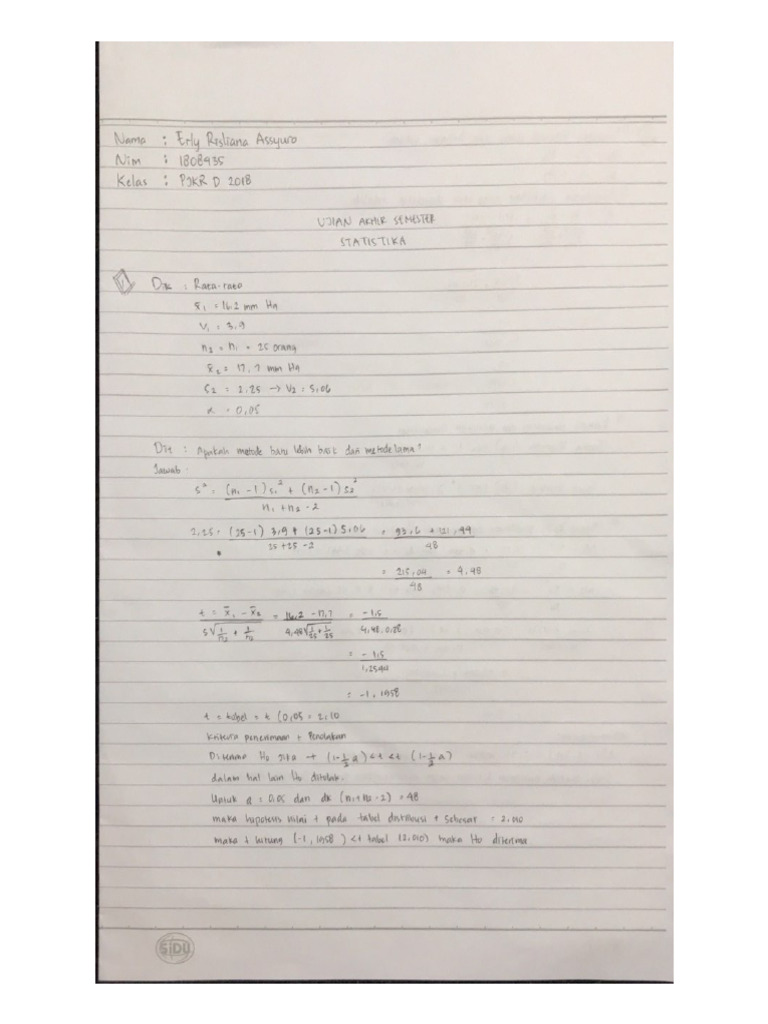 Nama : Erly Risliana Assyuro
Nim : 1808435
Kelas : PJKR D 2018
UJIAN AKHIR SEMESTER
STATISTIKA
1. Dik : Rata-rata
x̄1 = 16.2 mm Hg
V1 = 3,9
n2 = n1 = 25 orang
x̄2 = 17,7 mm Hg
S2 = 2,25 → V2 = 5,06
α = 0,05
Dit : Apakah metode baru lebih baik dari metode lama?
Jawab :
s² = (n1 - 1) s1² + (n2 - 1) s2² / n1 + n2 - 2
2,25 = (25-1) 3,9 + (25-1) 5,06 / 25 + 25 - 2 = 93,6 + 121,44 / 48
= 215,04 / 48 = 4,48
t = x̄1 - x̄2 / s√1/n2 + 1/n2 = 16,2 - 17,7 / 4,48√1/25 + 1/25 = -1,5 / 4,48 . 0,28
= -1,5 / 1,2544
= -1,1958
t = tabel = t (0,05 = 2,10
Kriteria penerimaan + Penolakan
Diterima Ho jika -t (1-½a) < t < t (1-½a)
dalam hal lain Ho ditolak.
Untuk a = 0,05 dan dk (n1+n2-2) = 48
maka hipotesis nilai t pada tabel distribusi t sebesar = 2,010
maka t hitung (-1,1958) < t tabel (2,010) maka Ho diterima
SiDU